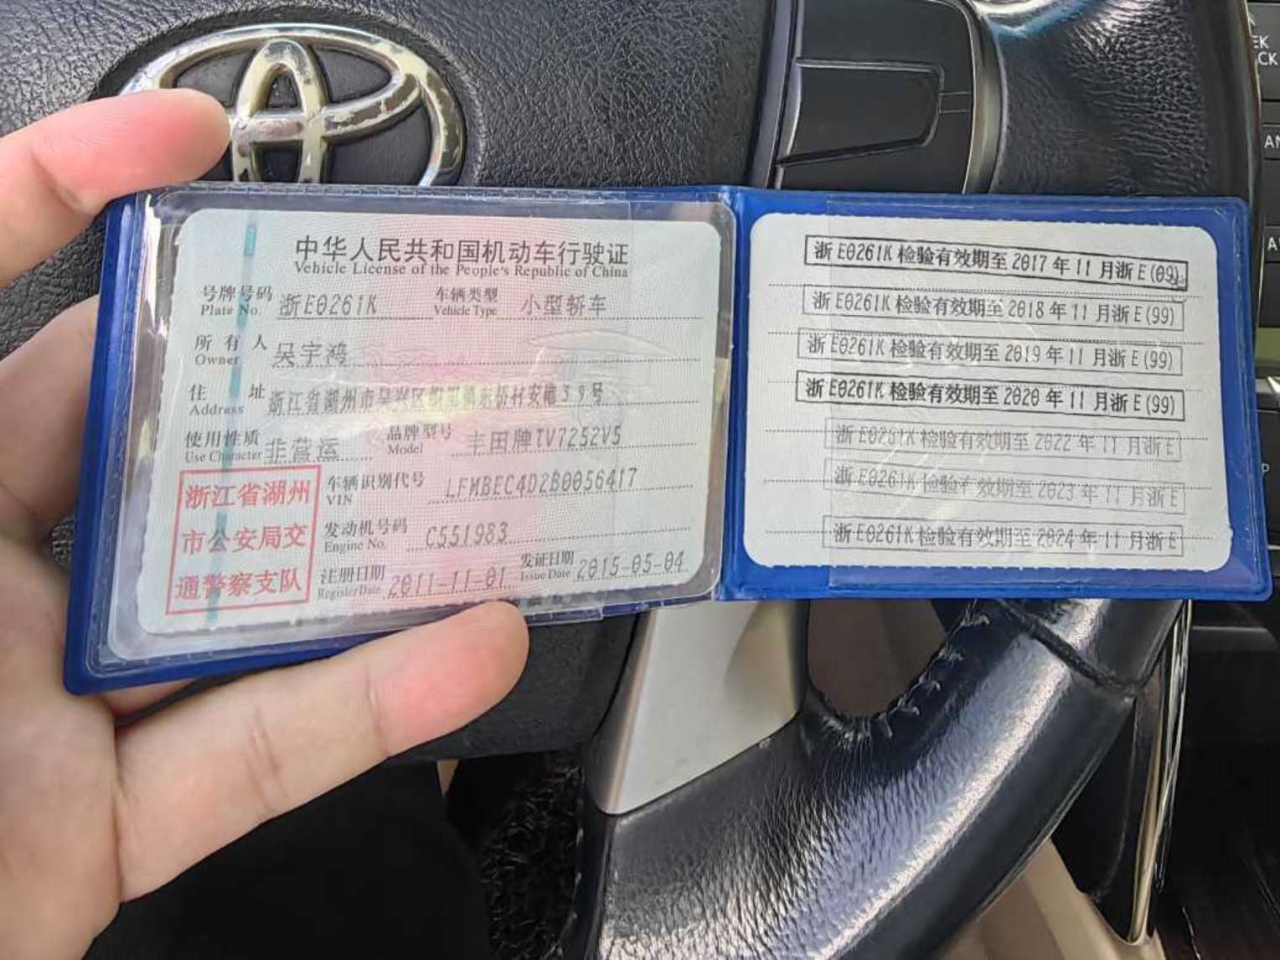 中华人民共和国机动车行驶证
Vehicle License of the People's Republic of China
号牌号码 浙E0261K 车辆类型 小型轿车
Plate No. Vehicle Type
所有人 吴宇鸿
Owner
住址 浙江省湖州市吴兴区织里镇 村安 39号
Address
使用性质 非营运 品牌型号 丰田牌TV7252V5
Use Character Model
浙江省湖州
市公安局交
通警察支队
车辆识别代号 LFMBEC4D2B0056417
VIN
发动机号码 C551983
Engine No.
注册日期 2011-11-01 发证日期 2015-05-04
Register Date Issue Date
浙E0261K检验有效期至2017年11月浙E(09)
浙E0261K检验有效期至2018年11月浙E(99)
浙E0261K检验有效期至2019年11月浙E(99)
浙E0261K检验有效期至2020年11月浙E(99)
浙E0261K检验有效期至2022年11月浙E
浙E0261K检验有效期至2023年11月浙E
浙E0261K检验有效期至2024年11月浙E